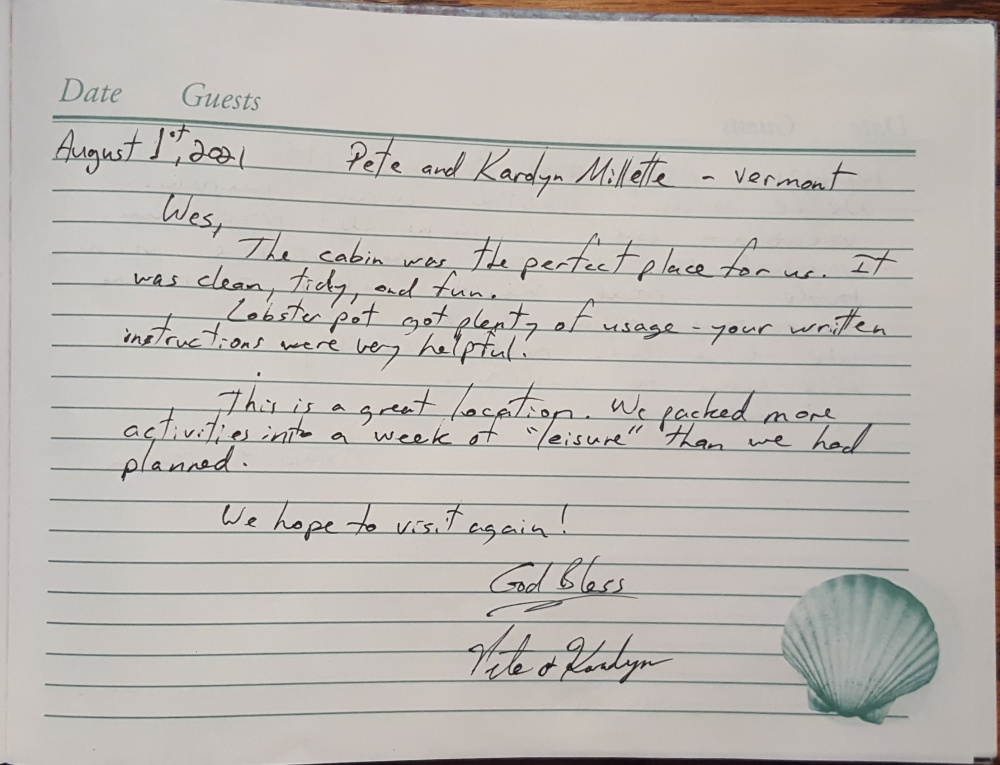 Date Guests
August 1st, 2021 Pete and Kardyn Millette - Vermont
Wes,
The cabin was the perfect place for us. It
was clean, tidy, and fun.
Lobster pot got plenty of usage - your written
instructions were very helpful.
This is a great location. We packed more
activities into a week of "leisure" than we had
planned.
We hope to visit again!
God Bless
Pete & Kardyn